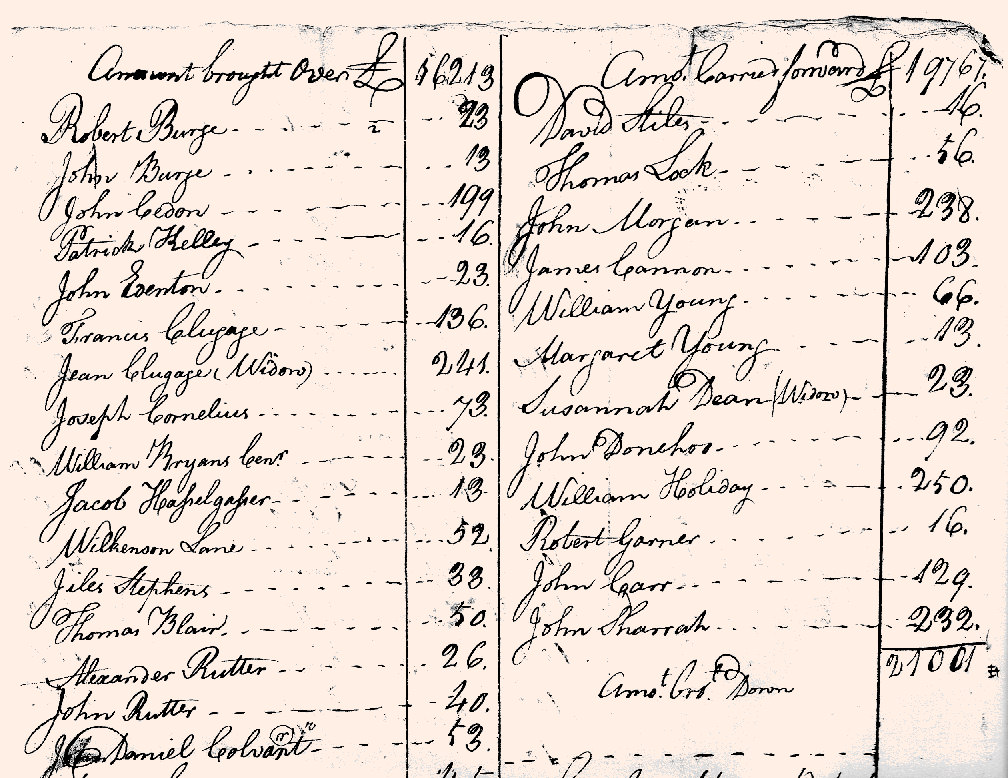 Amount brought Over £ 16213
Robert Burge 23
John Burge 13
John Cedon 199
Patrick Kelley 16
John Eventon 23
Francis Clugage 136
Jean Clugage (Widow) 241
Joseph Cornelius 73
William Bryans Cenr 23
Jacob Hasselgasser 13
Wilkenson Lane 52
Jiles Stephens 33
Thomas Blair 50
Alexander Rutter 26
John Rutter 40
Daniel Colvant 53
Amot. Carried forward £ 19767
David Stiles 16
Thomas Lock 56
John Morgan 238
James Cannon 103
William Young 66
Margaret Young 13
Susannah Dean (Widow) 23
John Donehoo 92
William Holiday 250
Robert Garner 16
John Carr 129
John Sharrah 232
21001
Amot. brot. Down